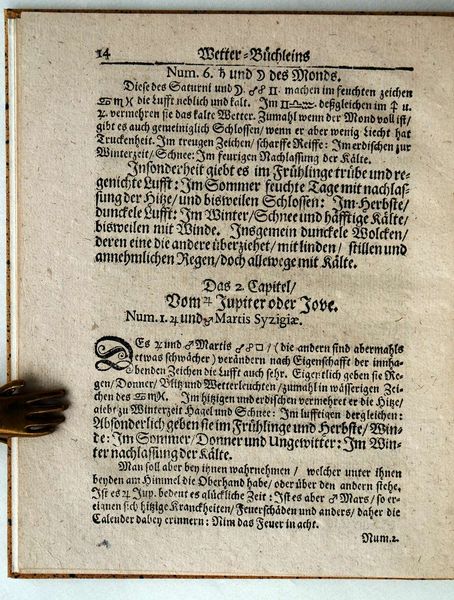 14 Wetter-Büchleins
Num. 6. ♄ und ☽ des Monds.
Diese des Saturni und ☽. ☌ ☍ □. machen im feuchten zeichen
♋ ♏ ♓ die Lufft neblich und kalt. Im ♊ ♎ ♒ deßgleichen im ☿ u.
♃ vermehren sie das kalte Wetter. Zumahl wenn der Mond voll ist/
gibt es auch gemeiniglich Schlossen/ wenn er aber wenig Liecht hat
Truckenheit. Im treugen Zeichen/ scharffe Reiffe: Im erdischen zur
Winterzeit/ Schnee: Im feurigen Nachlassung der Kälte.
Insonderheit giebt es im Frühlinge trübe und re-
genichte Lufft: Im Sommer feuchte Tage mit nachlas-
sung der Hitze/ und bisweilen Schlossen: Im Herbste/
dunckele Lufft: Im Winter/ Schnee und häfftige Kälte/
bisweilen mit Winde. Insgemein dunckele Wolcken/
deren eine die andere überziehet/ mit linden/ stillen und
annehmlichen Regen/ doch allewege mit Kälte.
Das 2. Capitel/
Vom ♃ Jupiter oder Jove.
Num. 1. ♃ und ♂ Martis Syzigiæ.
DEs ♃ und ♂ Martis ☌ ☍ □/ (die andern sind abermahls
etwas schwächer) verändern nach Eigenschafft der innha-
benden Zeichen die Lufft auch sehr. Eigentlich geben sie Re-
gen/ Donner/ Blitz und Wetterleuchten/ zumahl in wässerigen Zei-
chen des ♋ ♏ ♓. Im hitzigen und erdischen vermehret er die Hitze/
giebt zu Winterzeit Hagel und Schnee: Im lufftigen dergleichen:
Absonderlich geben sie im Frühlinge und Herbste/ Win-
de: Im Sommer/ Donner und Ungewitter: Im Win-
ter nachlassung der Kälte.
Man soll aber bey ihnen wahrnehmen/ welcher unter ihnen
beyden am Himmel die Oberhand habe/ oder über den andern stehe.
Ist es ♃ Jup. bedeut es glückliche Zeit: Ist es aber ♂ Mars/ so er-
eignen sich hitzige Kranckheiten/ Feuerschäden und anders/ daher die
Calender dabey erinnern: Nim das Feuer in acht.
Num. 2.